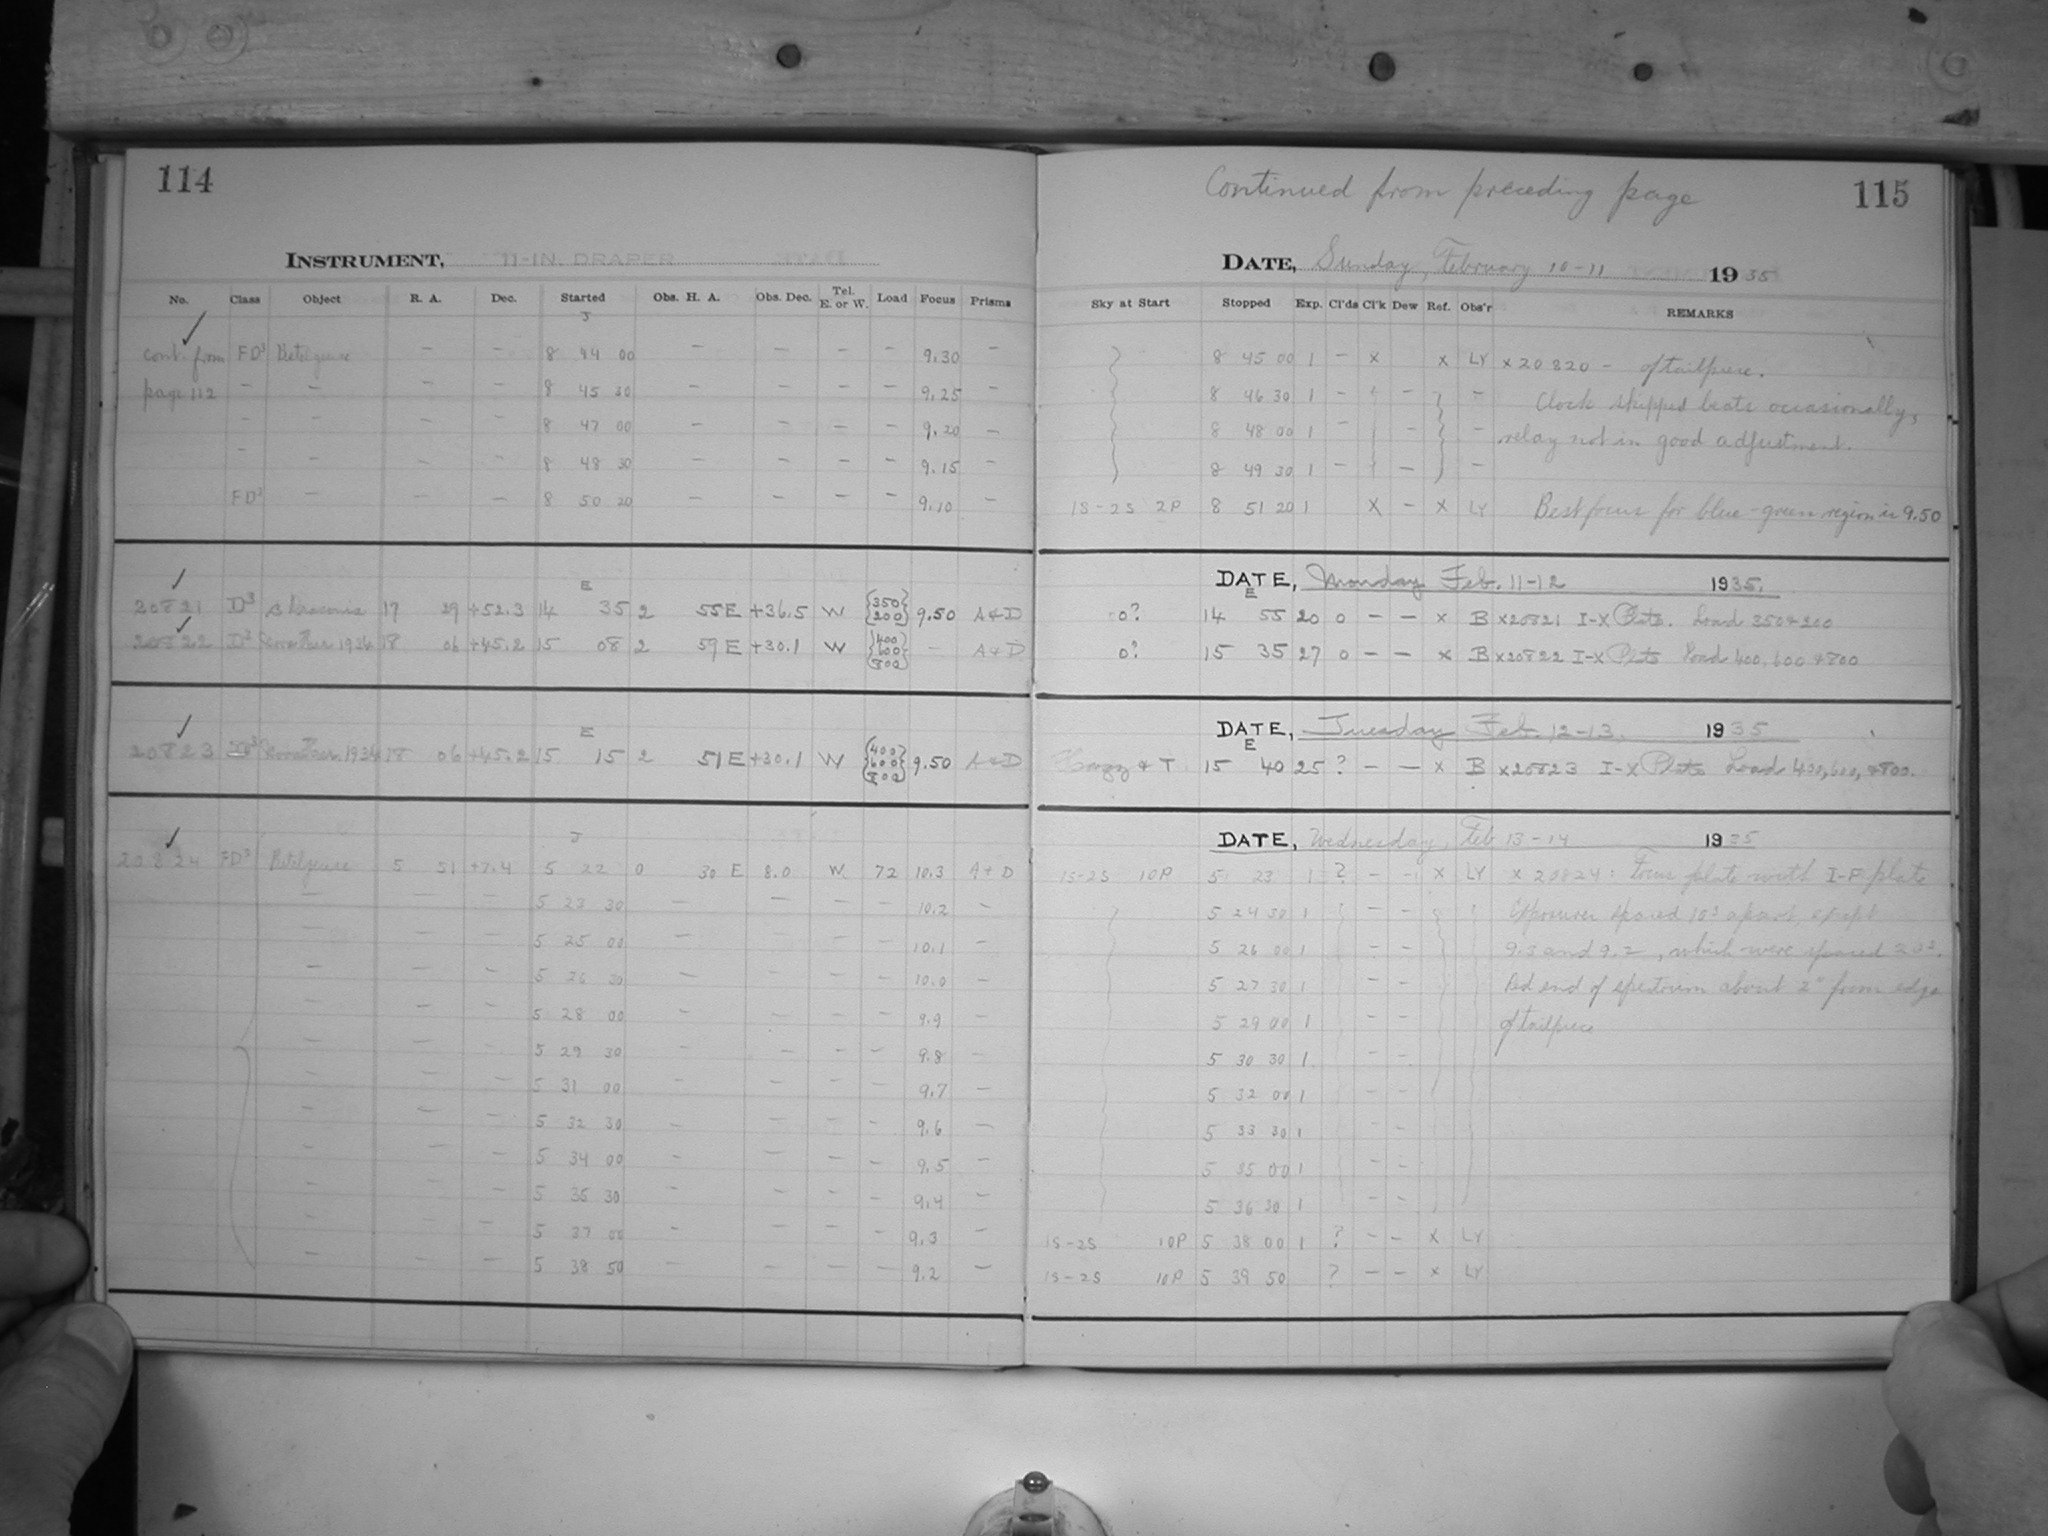 114
INSTRUMENT, 11-IN. DRAPER
No. Class Object R. A. Dec. Started Obs. H. A. Obs. Dec. Tel. E. or W. Load Focus Prisms
J
cont. from FD³ Betelgeuse — — 8 44 00 — — — — 9.30 —
page 112 — — — — 8 45 30 — — — — 9.25 —
— — — 8 47 00 — — — — 9.20 —
— — — 8 48 30 — — — — 9.15 —
FD³ — — — 8 50 20 — — — — 9.10 —
E
20821 D³ β Draconis 17 29 +52.3 14 35 2 55 E +36.5 W {350 200} 9.50 A & D
20822 D³ 1934 18 06 +45.2 15 08 2 59 E +30.1 W {400 600 800} — A & D
E
20823 D³ 1934 18 06 +45.2 15 15 2 51 E +30.1 W {400 600 800} 9.50 A & D
J
20824 FD³ Betelgeuse 5 51 +7.4 5 22 0 30 E 8.0 W 72 10.3 A + D
— — — 5 23 30 — — — — 10.2 —
— — — 5 25 00 — — — — 10.1 —
— — — 5 26 30 — — — — 10.0 —
— — — 5 28 00 — — — — 9.9 —
— — — 5 29 30 — — — — 9.8 —
— — — 5 31 00 — — — — 9.7 —
— — — 5 32 30 — — — — 9.6 —
— — — 5 34 00 — — — — 9.5 —
— — — 5 35 30 — — — — 9.4 —
— — — 5 37 00 — — — — 9.3 —
— — — 5 38 50 — — — — 9.2 —
Continued from preceding page 115
DATE, Sunday, February 10-11 1935
Sky at Start Stopped Exp. Cl'ds Cl'k Dew Ref. Obs'r REMARKS
8 45 00 1 — x x LY x 20820 — of tailpiece.
8 46 30 1 — — — Clock skipped beats occasionally,
8 48 00 1 — — — relay not in good adjustment.
8 49 30 1 — — —
1S-2S 2P 8 51 20 1 X — x LY Best focus for blue-green region is 9.50
DATE, Monday Feb. 11-12 1935.
E
0? 14 55 20 0 — — x B x20821 I-X Plate. Load 350 + 200
0? 15 35 27 0 — — x B x20822 I-X Plate Load 400, 600 + 800
DATE, Tuesday Feb. 12-13, 1935
E
Hazy & T 15 40 25 ? — — x B x20823 I-X Plate Load 400, 600, + 800.
DATE, Wednesday, Feb 13-14 1935
1S-2S 10P 5 23 1 ? — — x LY x 20824: Focus plate with I-F plate
5 24 30 1 — — Exposures spaced 10ˢ apart, except
5 26 00 1 — — 9.3 and 9.2, which were spaced 20ˢ.
5 27 30 1 — — Red end of spectrum about 2" from edge
5 29 00 1 — — of tailpiece
5 30 30 1 — —
5 32 00 1 — —
5 33 30 1 — —
5 35 00 1 — —
5 36 30 1 — —
1S-2S 10P 5 38 00 1 ? — — x LY
1S-2S 10P 5 39 50 ? — — x LY